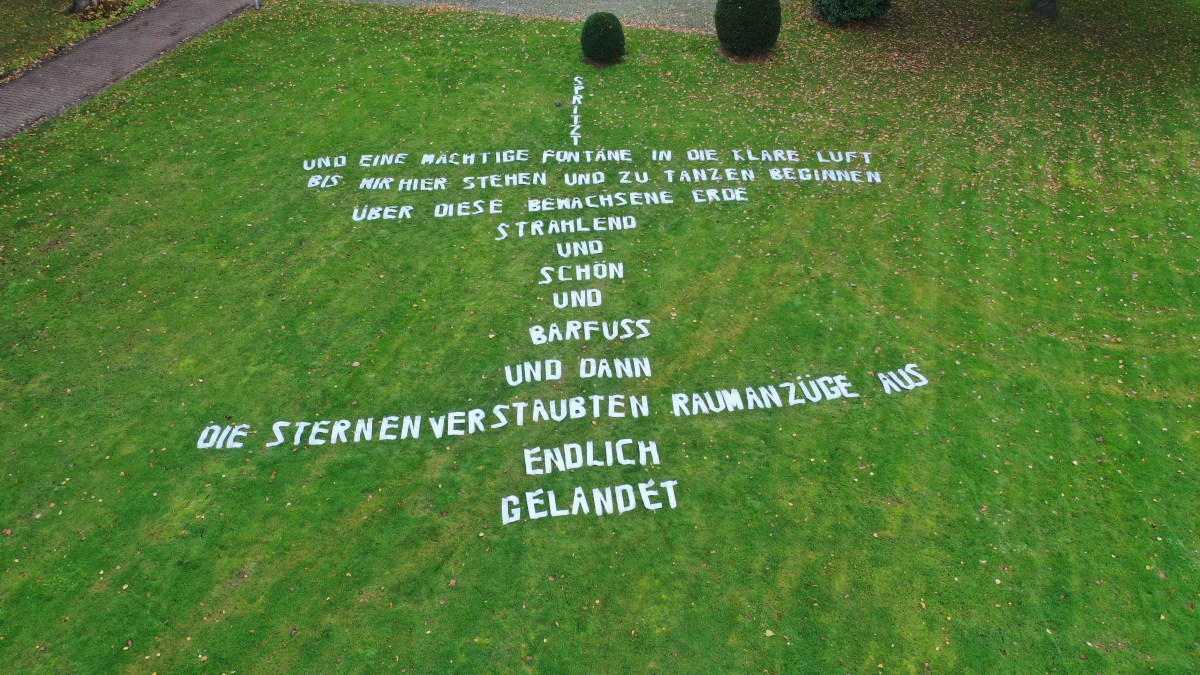 SPRITZT
UND EINE MÄCHTIGE FONTÄNE IN DIE KLARE LUFT
BIS WIR HIER STEHEN UND ZU TANZEN BEGINNEN
ÜBER DIESE BEWACHSENE ERDE
STRAHLEND
UND
SCHÖN
UND
BARFUSS
UND DANN
DIE STERNENVERSTAUBTEN RAUMANZÜGE AUS
ENDLICH
GELANDET